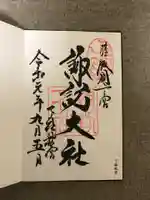 信濃國一之宮
諏訪大社
下社秋宮
令和元年九月五日